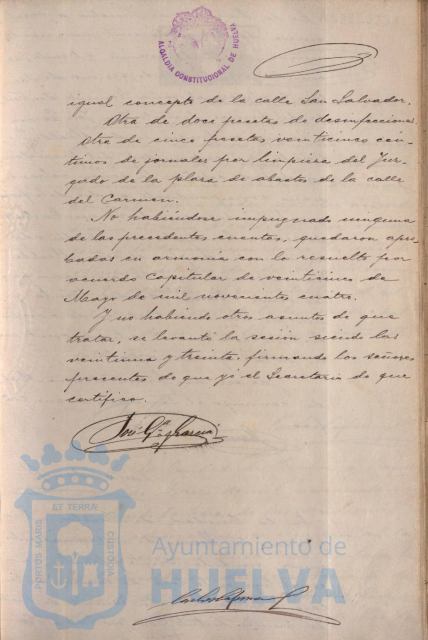 ALCALDIA CONSTITUCIONAL DE HUELVA
igual concepto de la calle San Salvador.
Otra de doce pesetas de desinfeccion
Otra de cinco pesetas veinticinco cén-
timos de jornales por limpieza del Juz-
gado de la plaza de abastos de la calle
del Carmen.
No habiéndose impugnado ninguna
de las precedentes cuentas, quedaron apro
badas en armonía con lo resuelto por
acuerdo Capitular de veinticinco de
Mayo de mil novecientos cuatro.
Y no habiendo otros asuntos de que
tratar, se levantó la sesión siendo las
veintiuna y treinta, firmando los señores
presentes de que yo el Secretario de que
certifico.
José Gª García
ET TERRAE
PORTUS MARIS
CUSTODIA
Ayuntamiento de
HUELVA